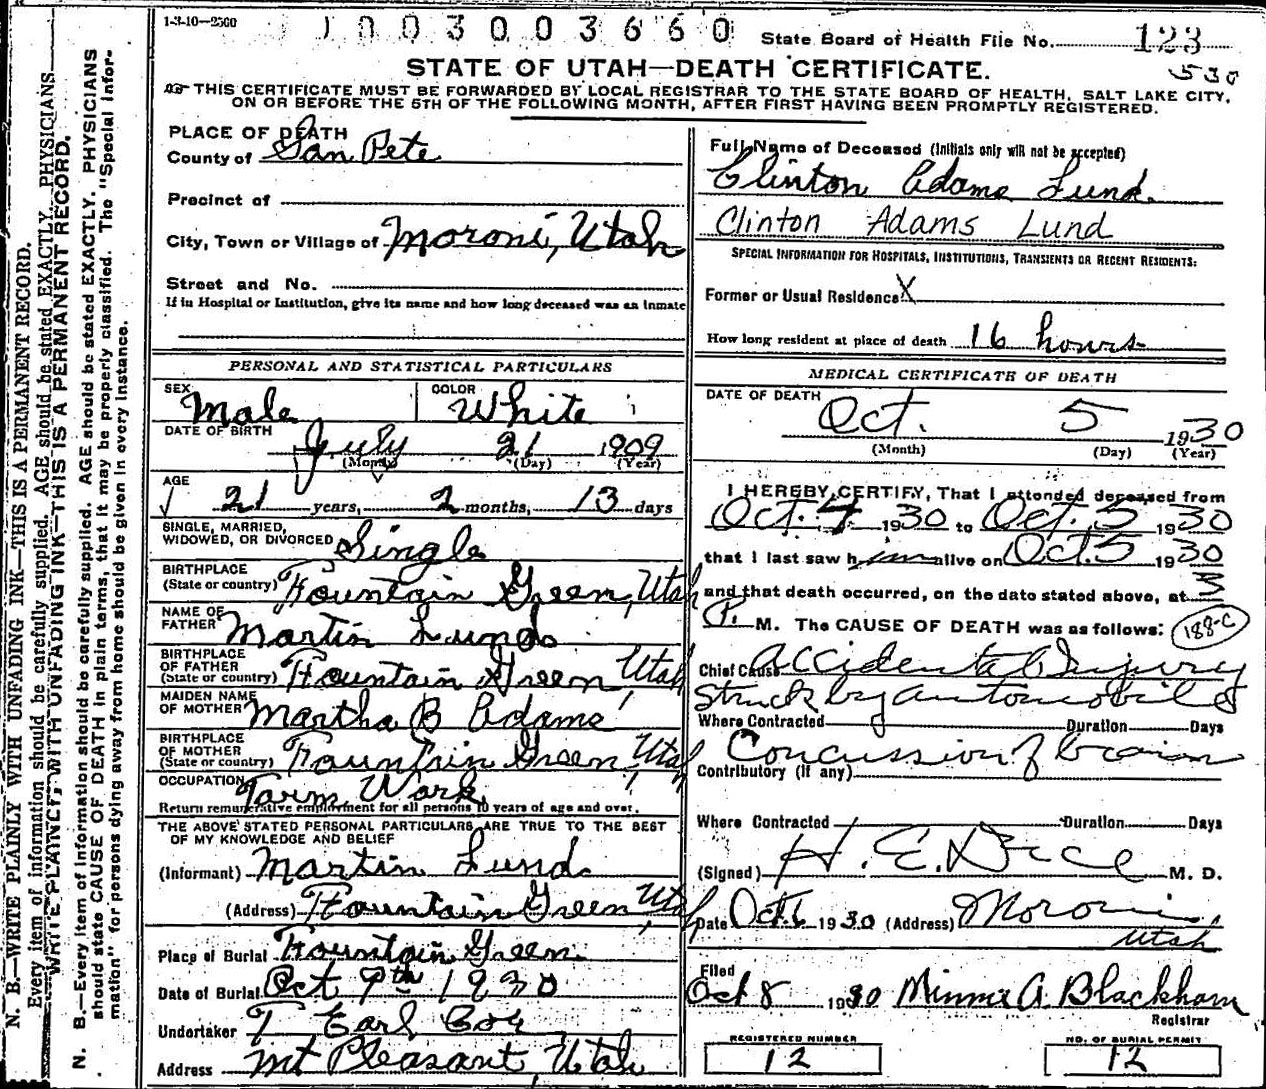 1-3-10—2500
1003003660
State Board of Health File No. 123
530
STATE OF UTAH—DEATH CERTIFICATE.
THIS CERTIFICATE MUST BE FORWARDED BY LOCAL REGISTRAR TO THE STATE BOARD OF HEALTH, SALT LAKE CITY,
ON OR BEFORE THE 5TH OF THE FOLLOWING MONTH, AFTER FIRST HAVING BEEN PROMPTLY REGISTERED.
N. B.—WRITE PLAINLY WITH UNFADING INK—THIS IS A PERMANENT RECORD.
Every item of information should be carefully supplied. AGE should be stated EXACTLY. PHYSICIANS
WRITE PLAINLY, WITH UNFADING INK—THIS IS A PERMANENT RECORD.
N. B.—Every item of information should be carefully supplied. AGE should be stated EXACTLY. PHYSICIANS
should state CAUSE OF DEATH in plain terms, that it may be properly classified. The "Special Infor-
mation" for persons dying away from home should be given in every instance.
PLACE OF DEATH
County of San Pete
Precinct of
City, Town or Village of Moroni, Utah
Street and No.
If in Hospital or Institution, give its name and how long deceased was an inmate
PERSONAL AND STATISTICAL PARTICULARS
SEX Male
COLOR White
DATE OF BIRTH
July 21 1909
(Month) (Day) (Year)
AGE
21 years, 2 months, 13 days
SINGLE, MARRIED,
WIDOWED, OR DIVORCED Single
BIRTHPLACE
(State or country) Fountain Green, Utah
NAME OF
FATHER Martin Lund
BIRTHPLACE
OF FATHER
(State or country) Fountain Green Utah
MAIDEN NAME
OF MOTHER Martha B Adams
BIRTHPLACE
OF MOTHER
(State or country) Fountain Green, Utah
OCCUPATION Farm Work
Return remunerative employment for all persons 10 years of age and over.
THE ABOVE STATED PERSONAL PARTICULARS ARE TRUE TO THE BEST
OF MY KNOWLEDGE AND BELIEF
(Informant) Martin Lund
(Address) Fountain Green, Utah
Place of Burial Fountain Green
Date of Burial Oct 9th 1930
Undertaker T Earl Coe
Address Mt Pleasant, Utah
Full Name of Deceased (Initials only will not be accepted)
Clinton Adams Lund.
Clinton Adams Lund
SPECIAL INFORMATION FOR HOSPITALS, INSTITUTIONS, TRANSIENTS OR RECENT RESIDENTS:
Former or Usual Residence X
How long resident at place of death 16 hours
MEDICAL CERTIFICATE OF DEATH
DATE OF DEATH
Oct. 5 1930
(Month) (Day) (Year)
I HEREBY CERTIFY, That I attended deceased from
Oct. 4 1930 to Oct. 5 1930
that I last saw him alive on Oct 5 1930
and that death occurred, on the date stated above, at 3
P. M. The CAUSE OF DEATH was as follows: 188-C
Chief Cause Accidental Injury
Struck by automobile
Where Contracted Duration Days
Concussion of brain
Contributory (if any)
Where Contracted Duration Days
(Signed) H. E. Dice M. D.
Date Oct 6 1930 (Address) Moroni,
Utah
Filed
Oct 8 1930 Minnie A. Blackham
Registrar
REGISTERED NUMBER
12
NO. OF BURIAL PERMIT
12